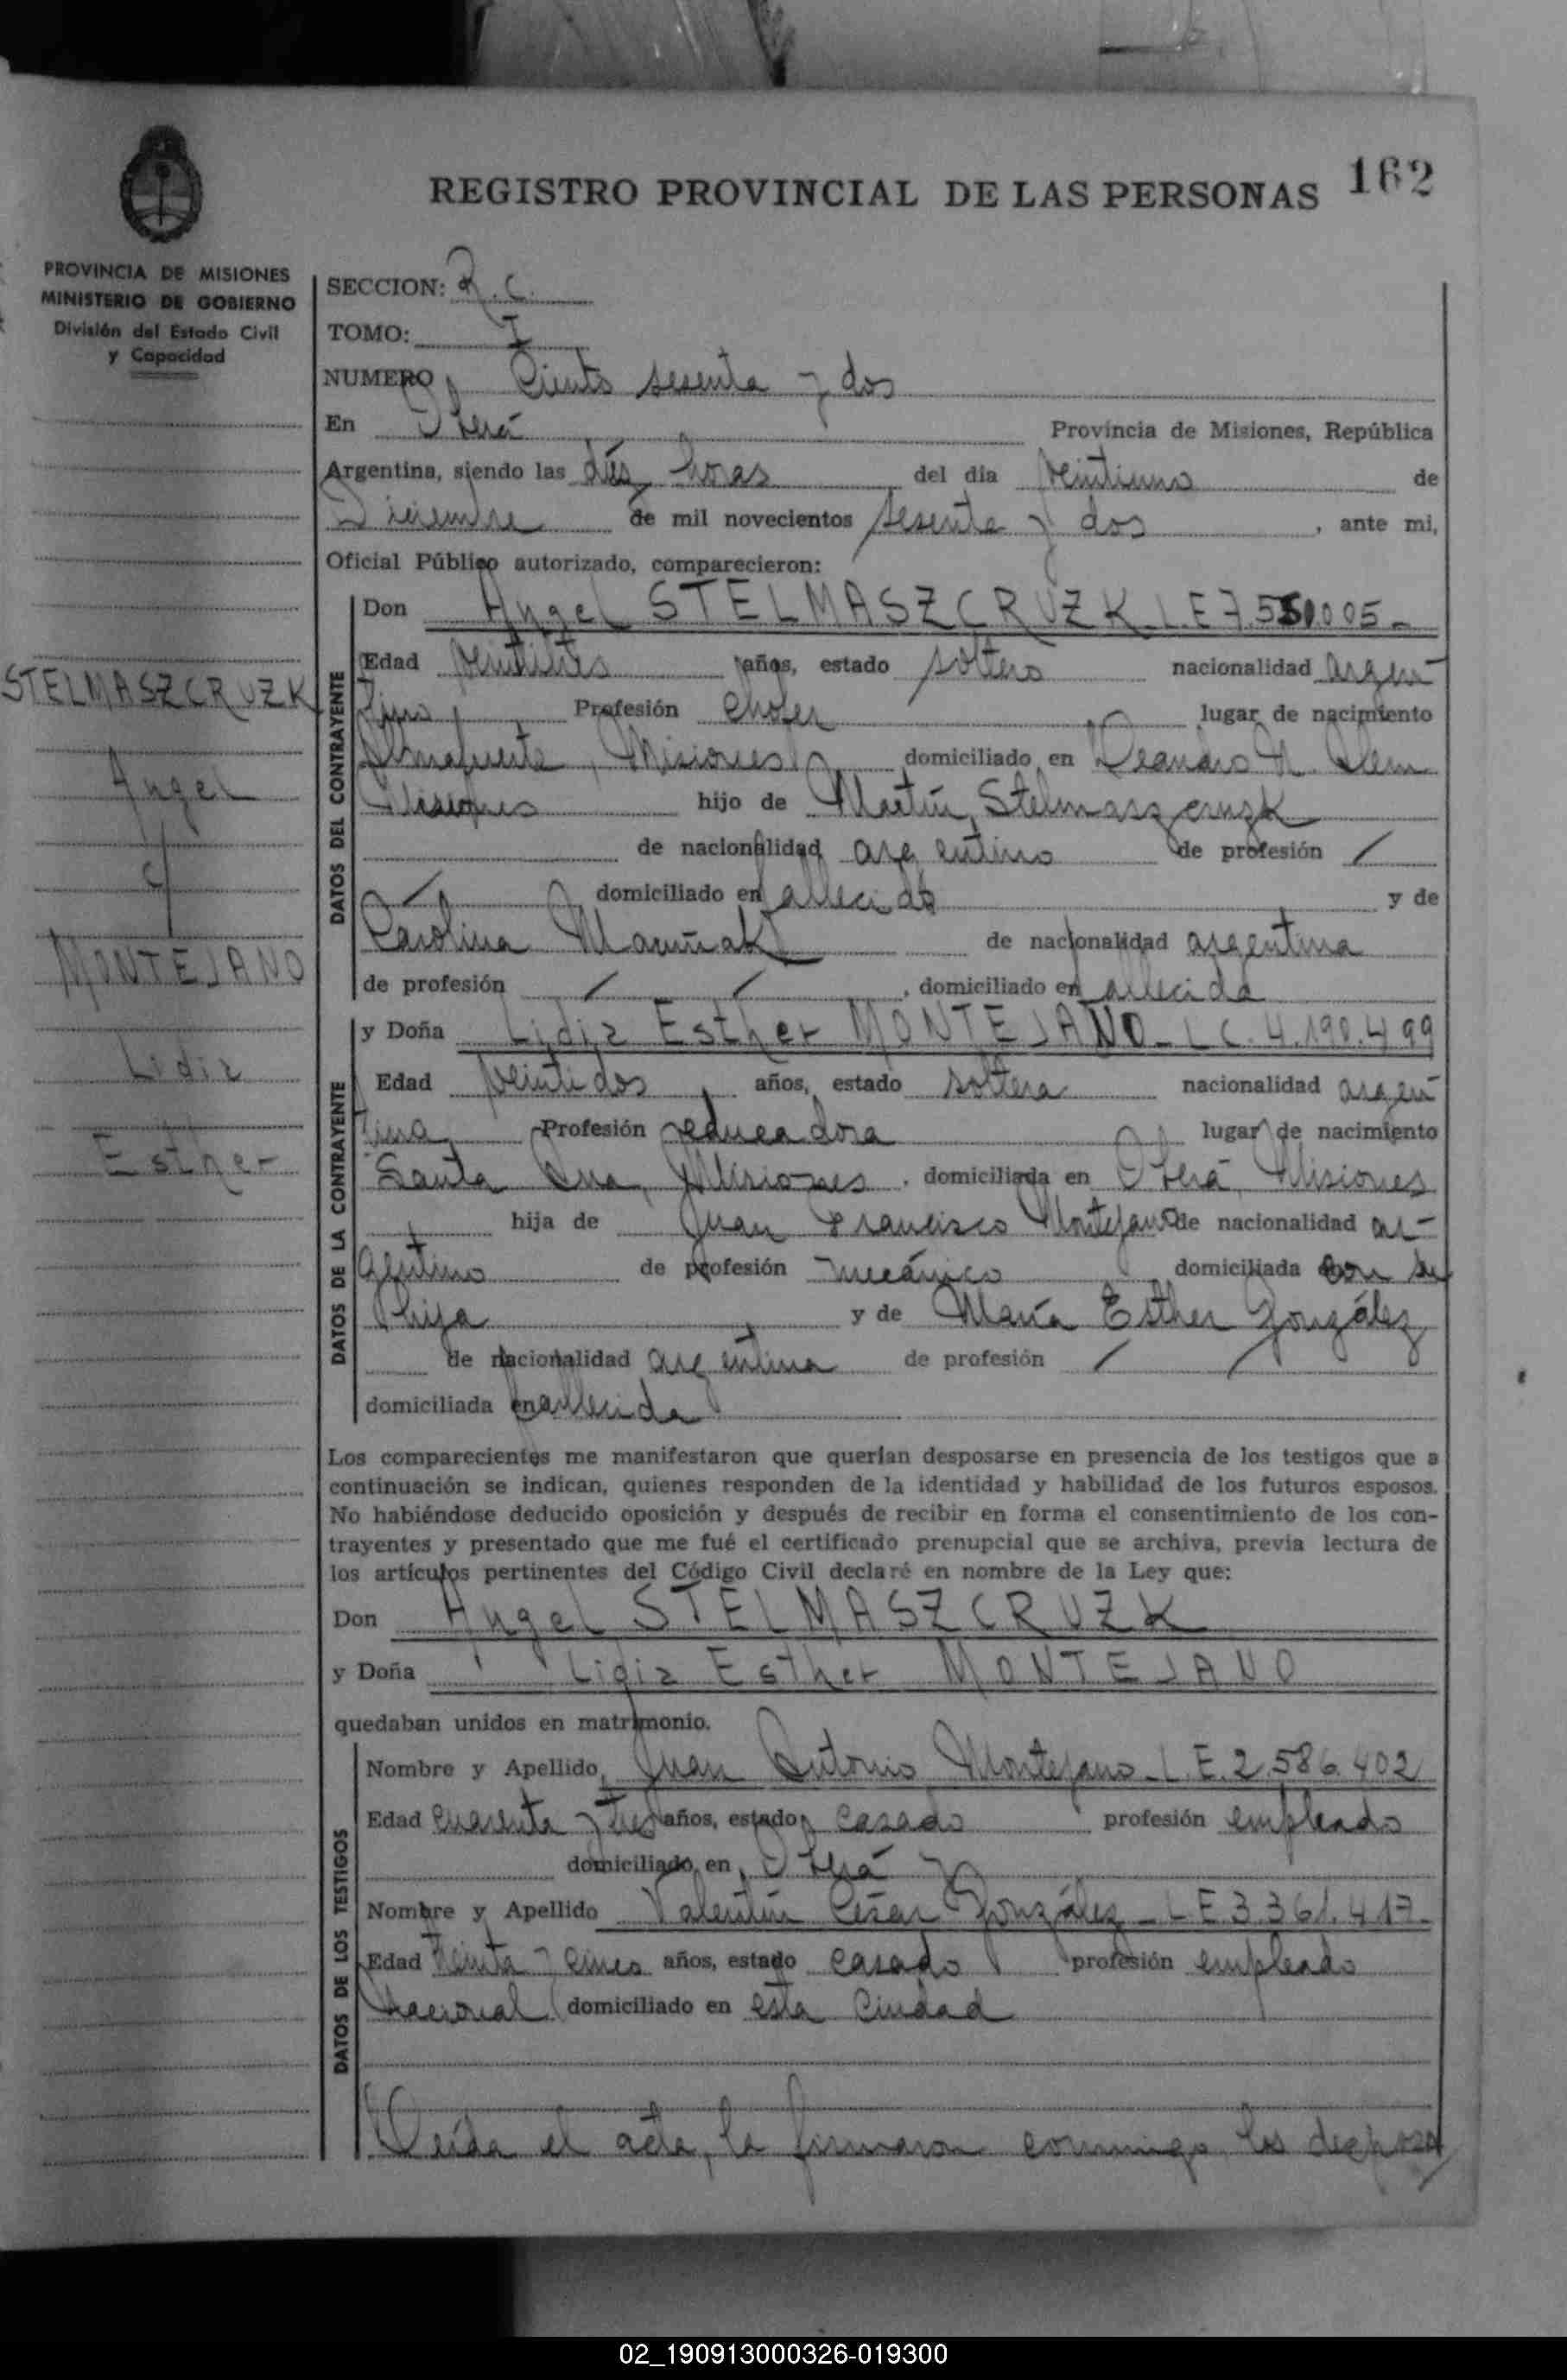 REGISTRO PROVINCIAL DE LAS PERSONAS 162
PROVINCIA DE MISIONES
MINISTERIO DE GOBIERNO
División del Estado Civil
y Capacidad
SECCION: R.C.
TOMO: I
NUMERO Ciento sesenta y dos
En Oberá Provincia de Misiones, República
Argentina, siendo las diés horas del dia veintiuno de
Diciembre de mil novecientos sesenta y dos, ante mi,
Oficial Público autorizado, comparecieron:
STELMASZCRUZK
Angel
c/
MONTEJANO
Lidia
Esther
DATOS DEL CONTRAYENTE
Don Angel STELMASZCRUZK L.E 7.551.005-
Edad veintitrés años, estado soltero nacionalidad argen
tino Profesión chofer lugar de nacimiento
Almafuerte, Misiones domiciliado en Leandro N. Alem
Misiones hijo de Martín Stelmaszcruzk
de nacionalidad argentino de profesión /
/ domiciliado en fallecido y de
Carolina de nacionalidad argentina
de profesión / / , domiciliado en fallecida
DATOS DE LA CONTRAYENTE
y Doña Lidia Esther MONTEJANO - L C. 4.190.499
Edad veintidos años, estado soltera nacionalidad argen
tina Profesión reducadora lugar de nacimiento
Santa Ana, Misiones, domiciliada en Oberá, Misiones
hija de Juan Francisco Montejano de nacionalidad ar-
gentino de profesión mecánico domiciliada con su
hija y de María Esther González
de nacionalidad argentina de profesión / /
domiciliada en fallecida
Los comparecientes me manifestaron que querían desposarse en presencia de los testigos que a
continuación se indican, quienes responden de la identidad y habilidad de los futuros esposos.
No habiéndose deducido oposición y después de recibir en forma el consentimiento de los con-
trayentes y presentado que me fué el certificado prenupcial que se archiva, previa lectura de
los artículos pertinentes del Código Civil declaré en nombre de la Ley que:
Don Angel STELMASZCRUZK
y Doña Lidia Esther MONTEJANO
quedaban unidos en matrimonio.
DATOS DE LOS TESTIGOS
Nombre y Apellido Juan Antonio Montejano - L.E. 2.586.402
Edad cuarenta y tres años, estado casado profesión empleado
domiciliado en Oberá
Nombre y Apellido Valentín César González - L E 3.361.417-
Edad treinta y cinco años, estado casado profesión empleado
Nacional domiciliado en esta Ciudad
Leída el acta, la firmaron conmigo los desposa
02_190913000326-019300